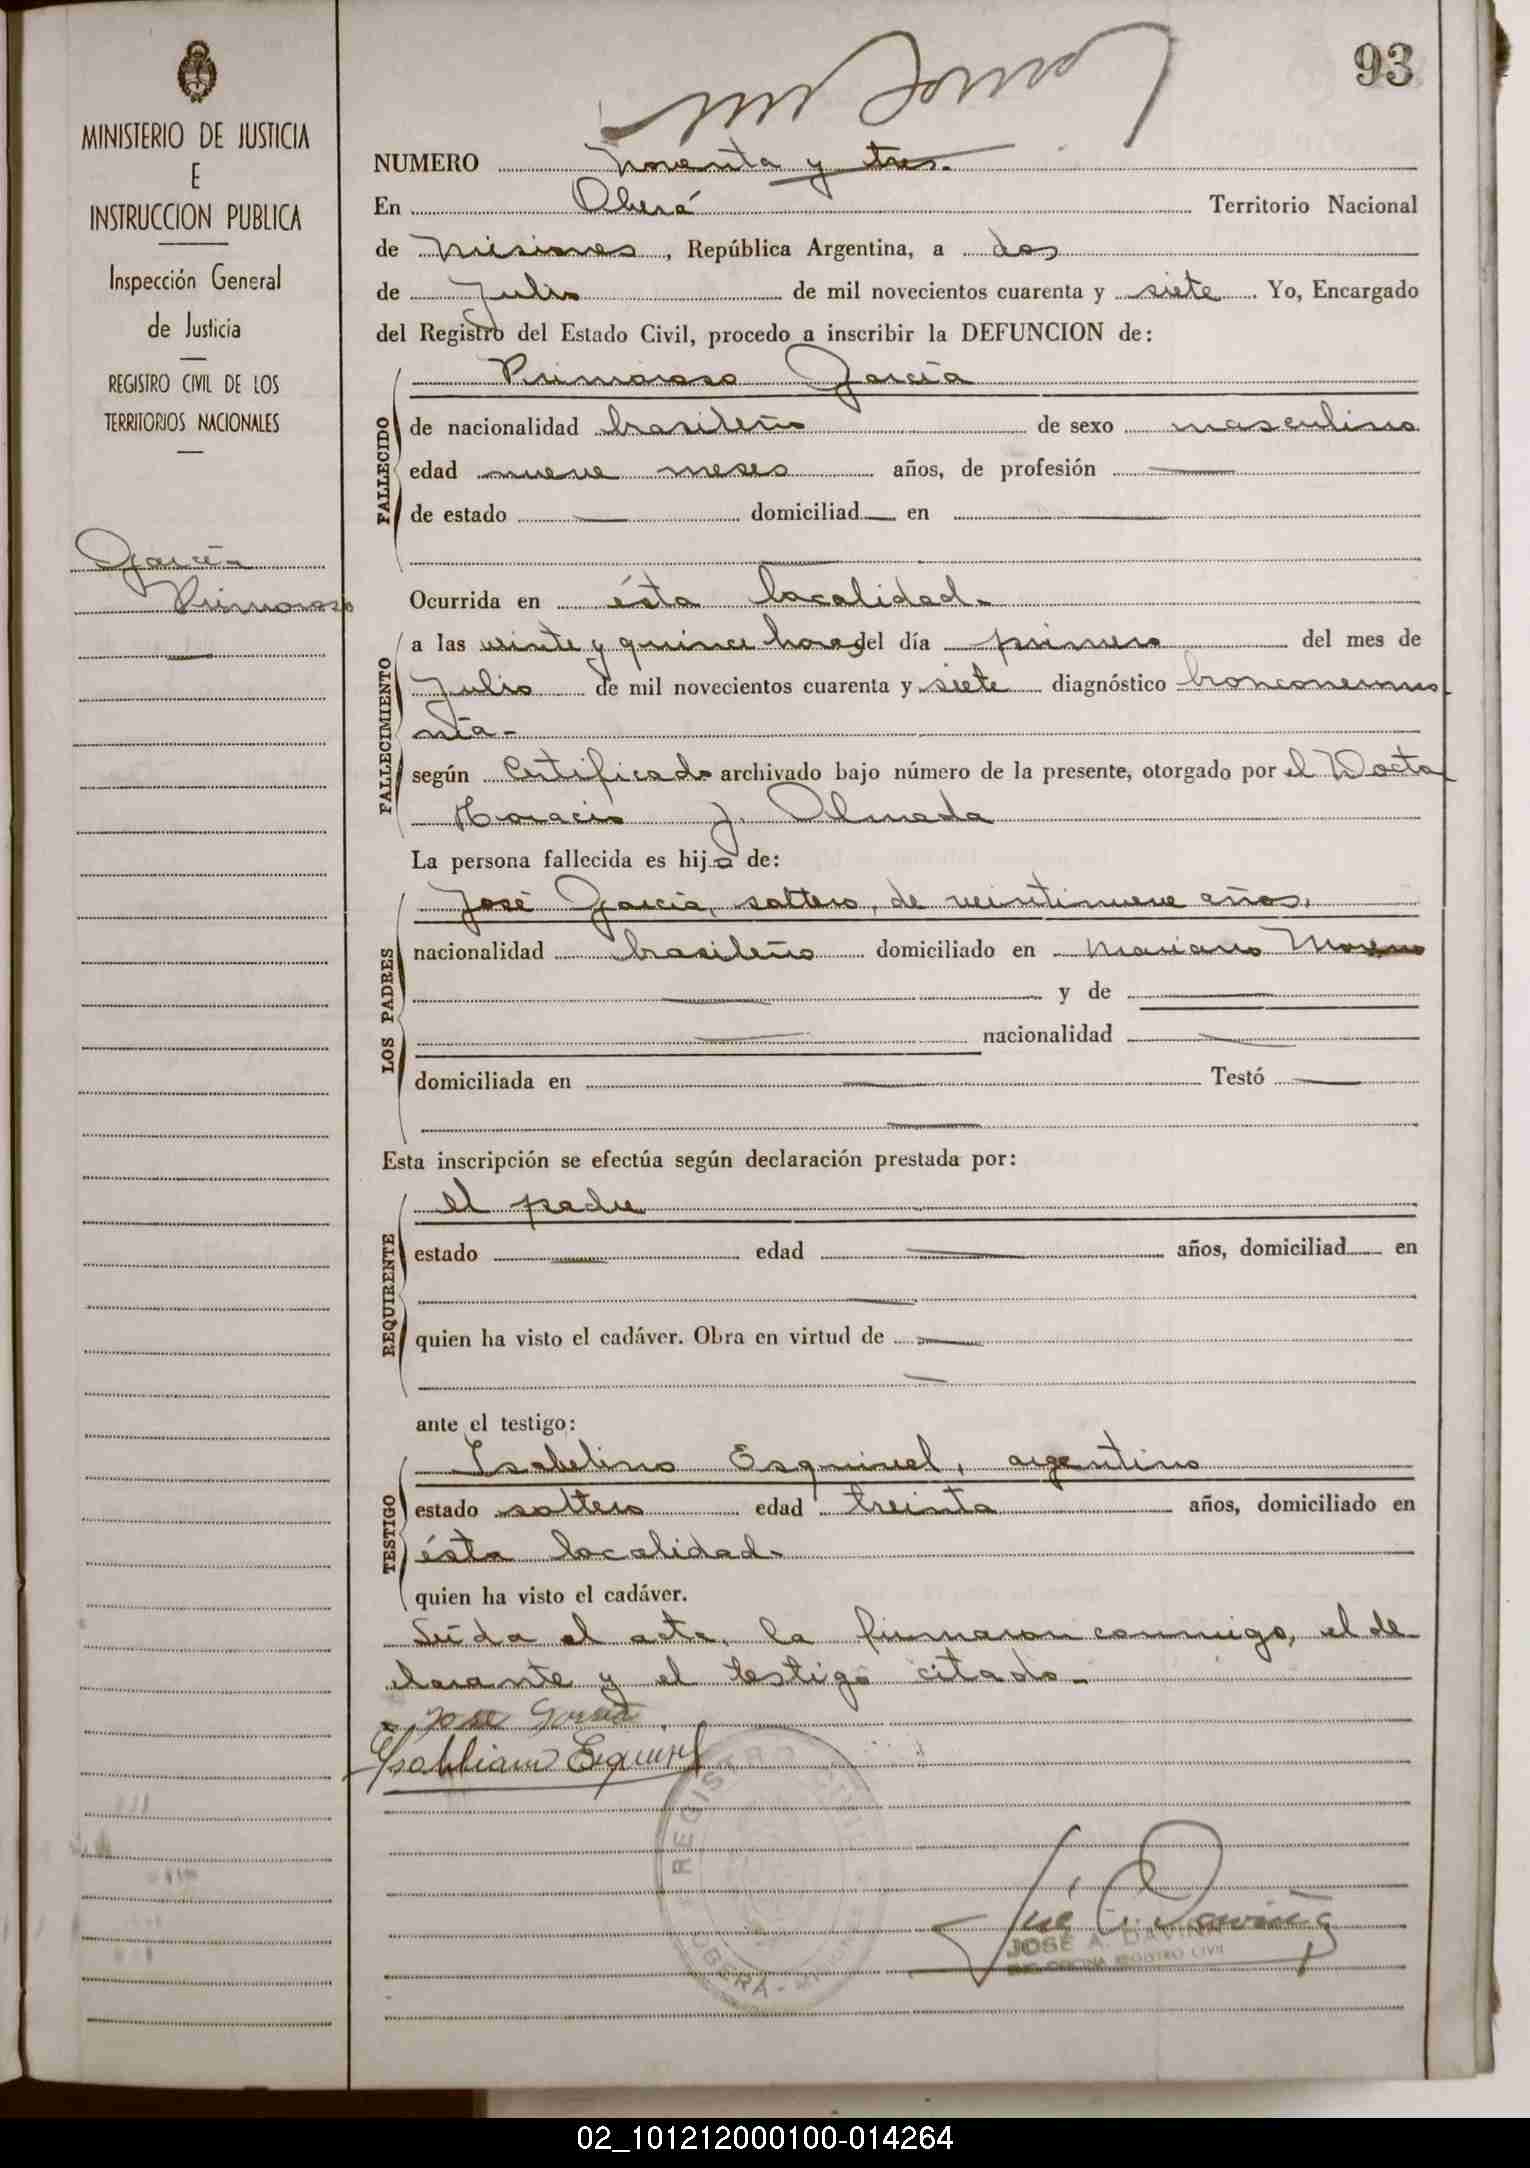 93
MINISTERIO DE JUSTICIA
E
INSTRUCCION PUBLICA
Inspección General
de Justicia
REGISTRO CIVIL DE LOS
TERRITORIOS NACIONALES
García
Primoroso
NUMERO noventa y tres.
En Oberá Territorio Nacional
de Misiones, República Argentina, a dos
de Julio de mil novecientos cuarenta y siete. Yo, Encargado
del Registro del Estado Civil, procedo a inscribir la DEFUNCION de:
Primoroso García
FALLECIDO
de nacionalidad brasileño de sexo masculino
edad nueve meses años, de profesión
de estado domiciliad en
Ocurrida en ésta localidad.
FALLECIMIENTO
a las veinte y quince horas del día primero del mes de
Julio de mil novecientos cuarenta y siete diagnóstico bronconeumo
nía-
según Certificado archivado bajo número de la presente, otorgado por el Doctor
Horacio J. Almeda
La persona fallecida es hijo de:
LOS PADRES
José García, soltero, de veintinueve años,
nacionalidad brasileño domiciliado en Mariano Moreno
y de
nacionalidad
domiciliada en Testó
Esta inscripción se efectúa según declaración prestada por:
REQUIRENTE
el padre
estado edad años, domiciliad en
quien ha visto el cadáver. Obra en virtud de
ante el testigo:
TESTIGO
Isabelino Esquivel, argentino
estado soltero edad treinta años, domiciliado en
ésta localidad.
quien ha visto el cadáver.
Leída el acta, la firmaron conmigo, el de
clarante y el testigo citado-
José García
Esquivel
REGISTRO CIVIL
OBERA - MISIONES
JOSÉ A. DAVIÑA
REGISTRO CIVIL
02_101212000100-014264